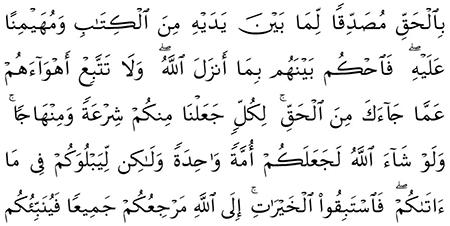 بِٱلۡحَقِّ مُصَدِّقٗا لِّمَا بَيۡنَ يَدَيۡهِ مِنَ ٱلۡكِتَٰبِ وَمُهَيۡمِنًا
عَلَيۡهِۖ فَٱحۡكُم بَيۡنَهُم بِمَآ أَنزَلَ ٱللَّهُۖ وَلَا تَتَّبِعۡ أَهۡوَآءَهُمۡ
عَمَّا جَآءَكَ مِنَ ٱلۡحَقِّۚ لِكُلّٖ جَعَلۡنَا مِنكُمۡ شِرۡعَةٗ وَمِنۡهَاجٗاۚ
وَلَوۡ شَآءَ ٱللَّهُ لَجَعَلَكُمۡ أُمَّةٗ وَٰحِدَةٗ وَلَٰكِن لِّيَبۡلُوَكُمۡ فِي مَآ
ءَاتَىٰكُمۡۖ فَٱسۡتَبِقُواْ ٱلۡخَيۡرَٰتِۚ إِلَى ٱللَّهِ مَرۡجِعُكُمۡ جَمِيعٗا فَيُنَبِّئُكُم